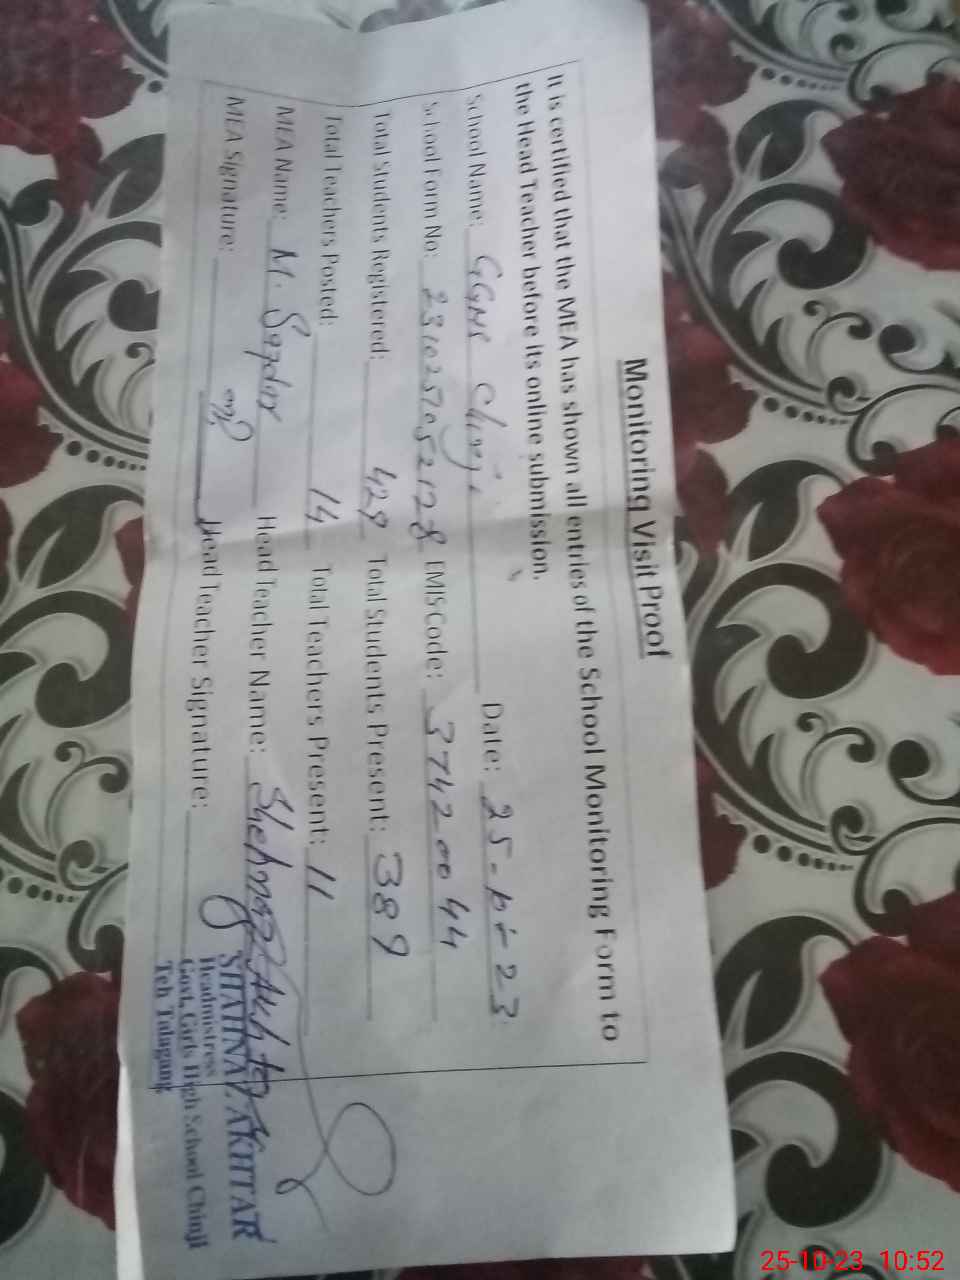 Monitoring Visit Proof
It is certified that the MEA has shown all entries of the School Monitoring Form to
the Head Teacher before its online submission.
School Name: GGHS Chinji Date: 25-10-23
School Form No: 2310257052128 EMIS Code: 37420044
Total Students Registered: 429 Total Students Present: 389
Total Teachers Posted: 14 Total Teachers Present: 11
MEA Name: M. Safdar Head Teacher Name: Shehnaz Akhtar
MEA Signature: Head Teacher Signature:
SHAHNAZ AKHTAR
Headmistress
Govt, Girls High School Chinji
Teh Talagang
25-10-23 10:52